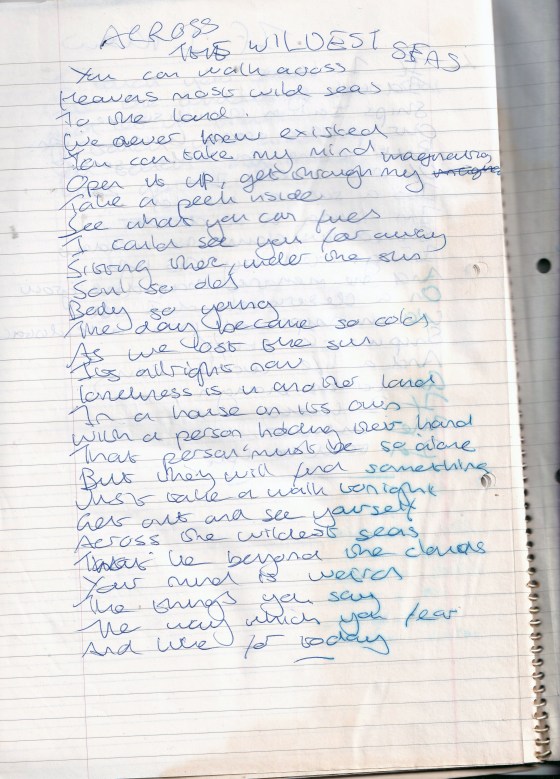 ACROSS
THE WILDEST SEAS
You can walk across
Heavens most wild seas
To the land
We never knew existed
You can take my mind
Open it up, get through my imagination
Take a peek inside
See what you can
I could see you far away
Sitting there, under the sun
Soul so old
Body so young
The day became so cold
As we lost the sun
Its allright now
loneliness is in another land
In a house on its own
With a person holding their hand
That person must be so alone
But they will find something
Just take a walk tonight
Get out and see yourself
Across the wildest seas
That lie beyond the clouds
Your mind is weird
The things you say
The way which you fear
And live for today